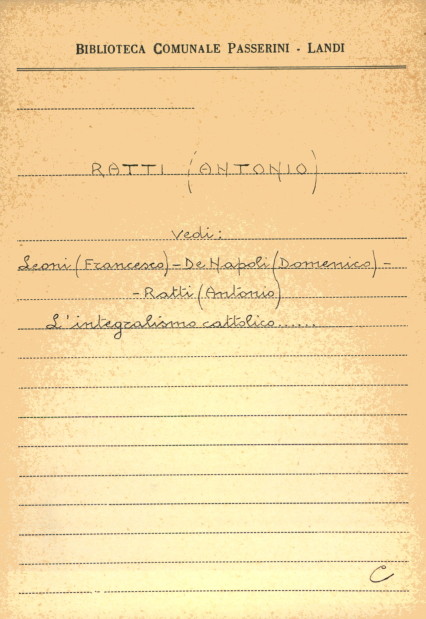 BIBLIOTECA COMUNALE PASSERINI - LANDI
RATTI (ANTONIO)
Vedi:
Leoni (Francesco) - De Napoli (Domenico) -
- Ratti (Antonio)
L'integralismo cattolico......
C